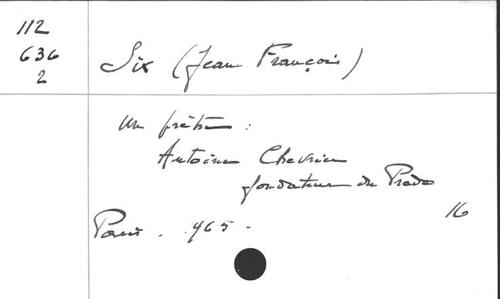 112
636
2
Six (Jean François)
Un prêtre :
Antoine Chevrier
fondateur du Prado
16
Paris . 965 .